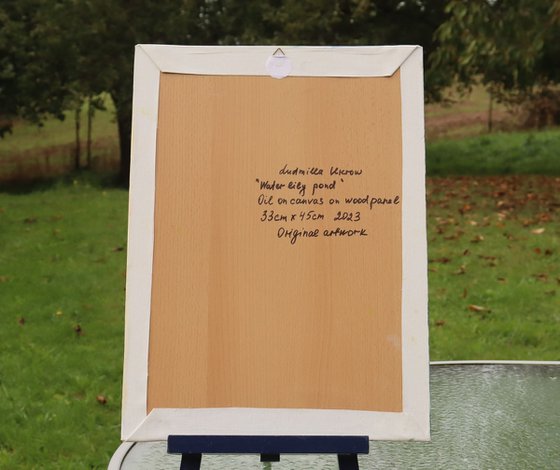 Ludmilla Ukrow
"Water lily pond"
Oil on canvas on wood panel
33cm x 45cm 2023
Original artwork